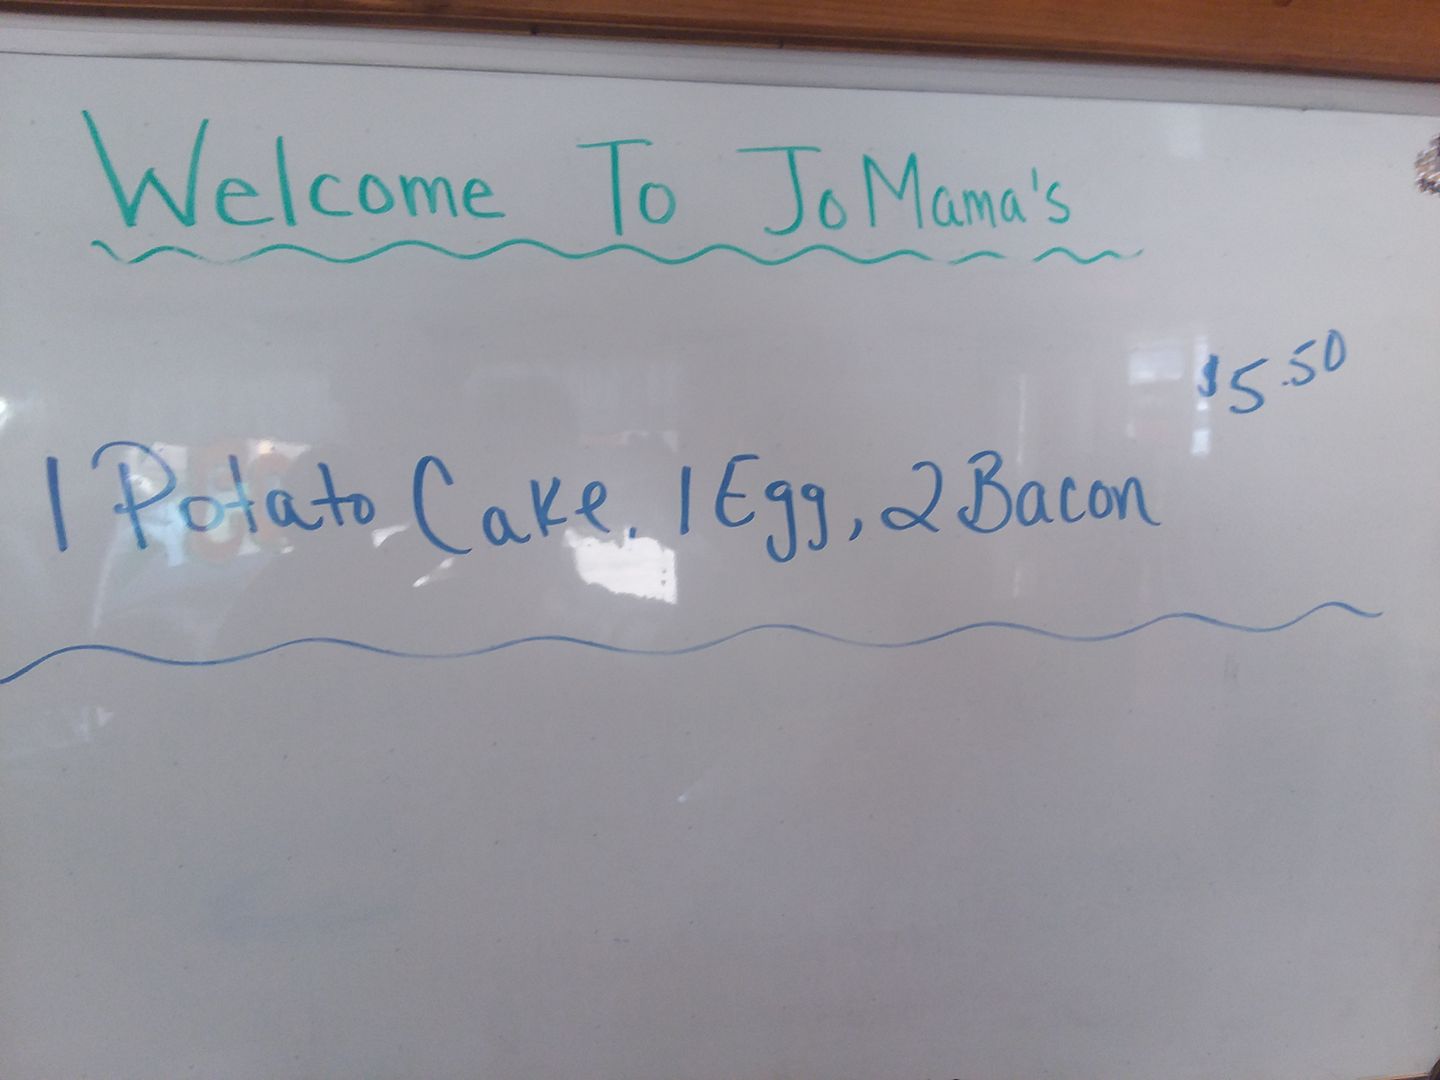 Welcome To JoMama's
$5.50
1 Potato Cake, 1 Egg, 2 Bacon